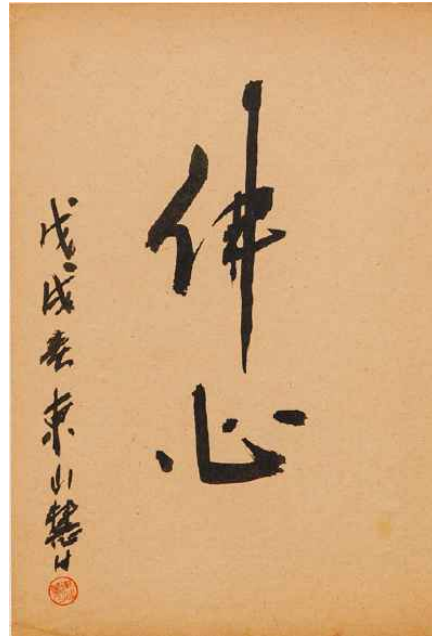 佛心
戊戌春東山慧日